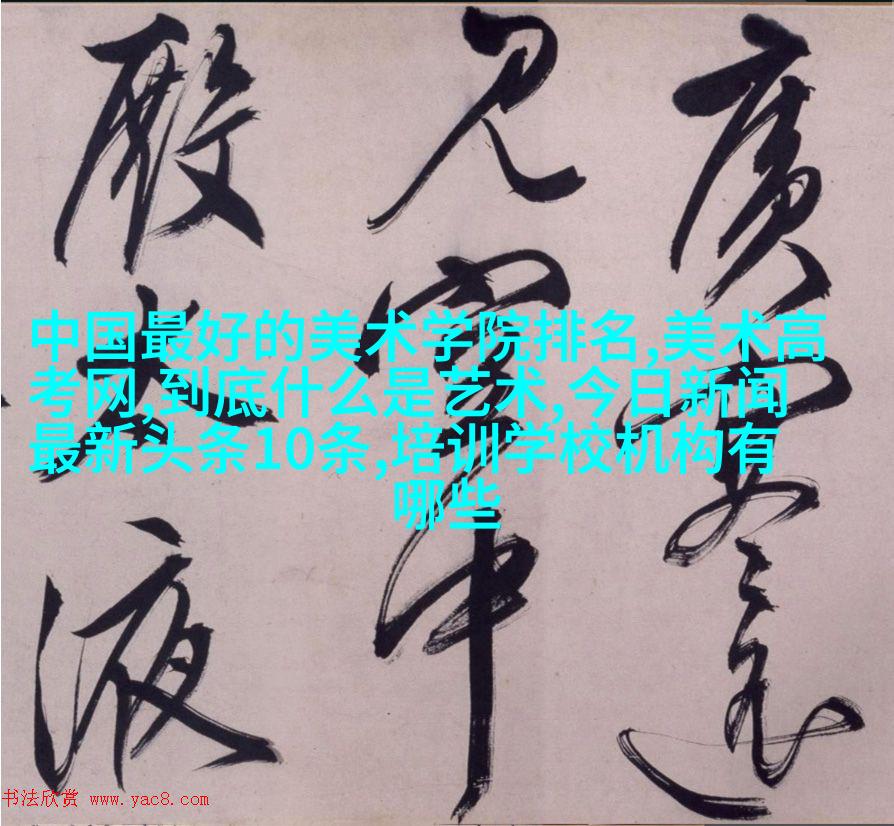 中国最好的美术学院排名,美术高
考网,到底什么是艺术,今日新闻
最新头条10条,培训学校机构有
哪些
廣遠
見中
殿太液
书法欣赏 www.yac8.com